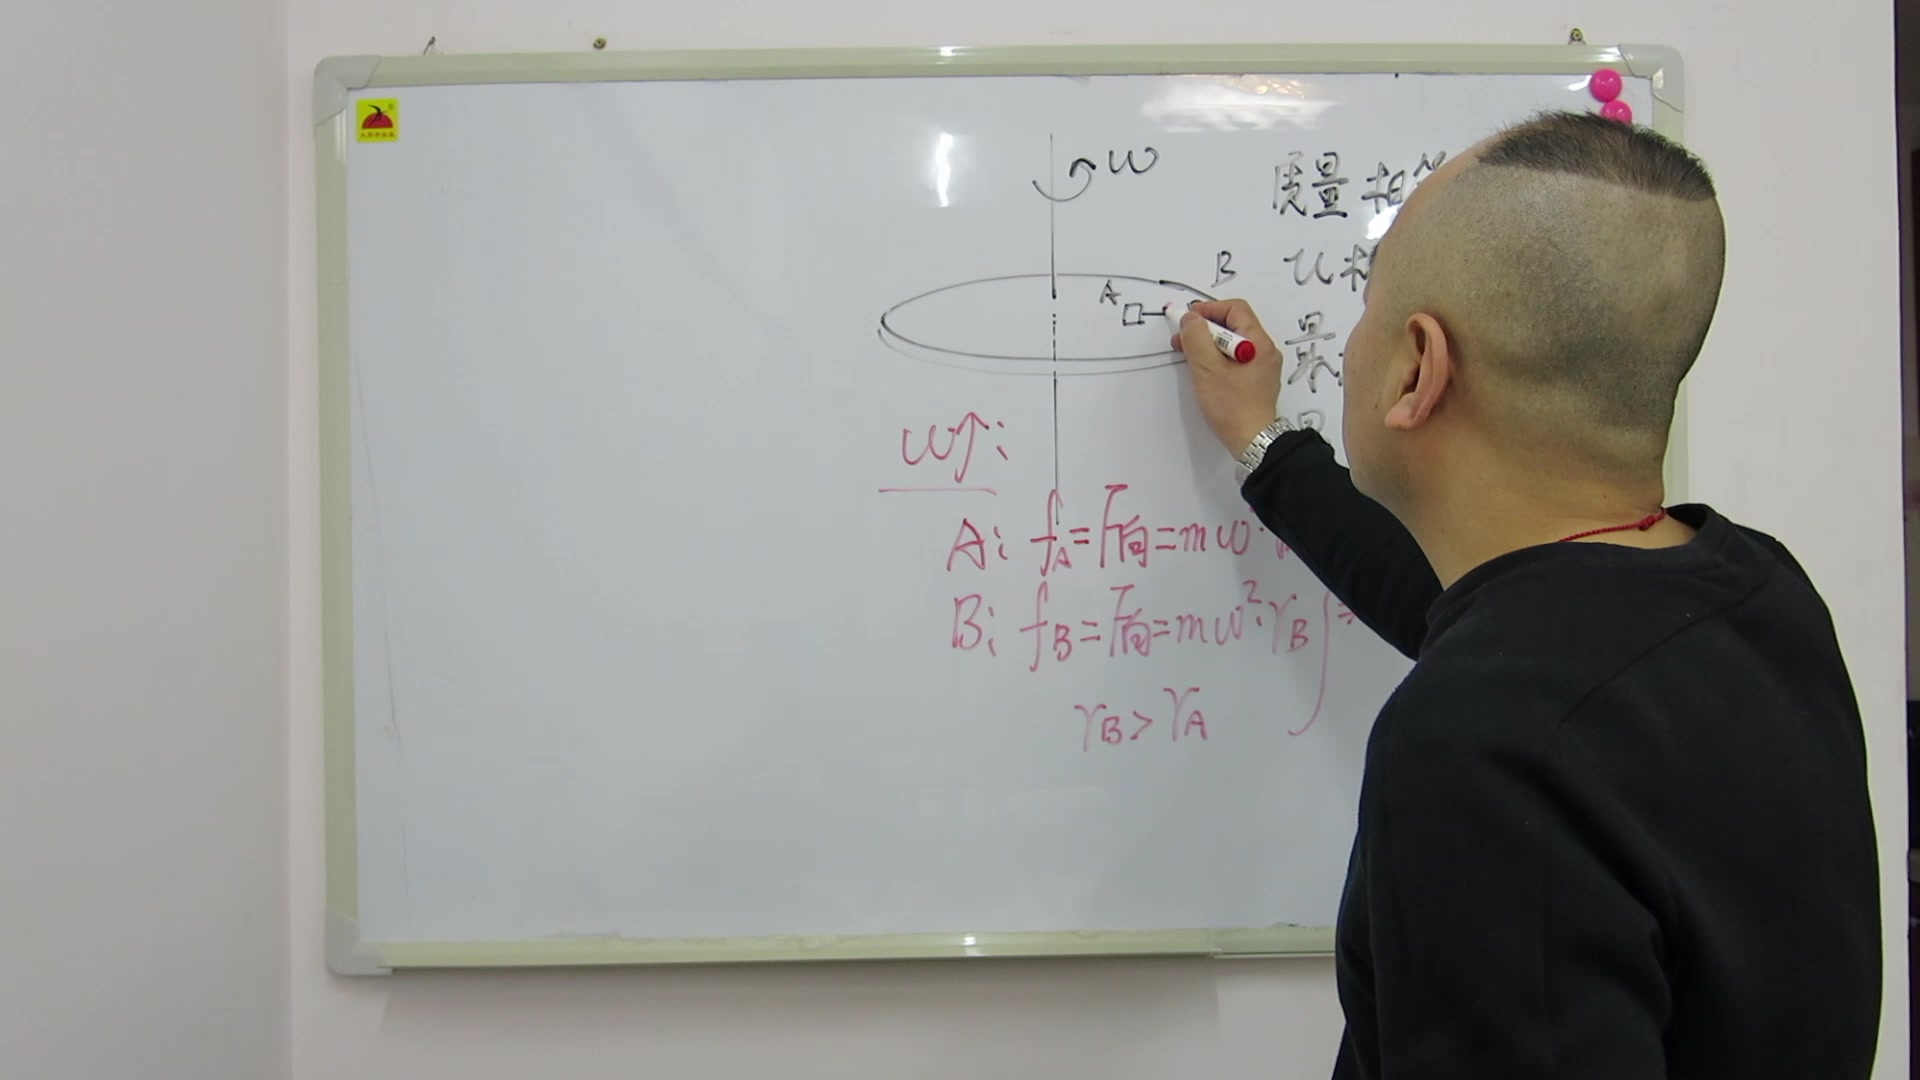 ω
质量相
B
A
μ
最
ω↑:
A: f_A=F向=mω²·
B: f_B=F向=mω²·r_B
r_B>r_A